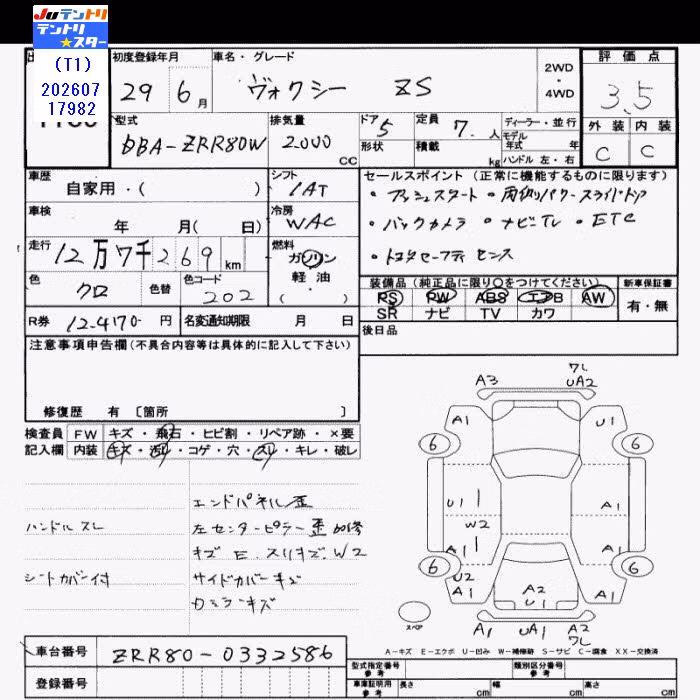 JUテントリ
テントリ
★スター
(T1)
202607
17982
初度登録年月
29 6月
車名・グレード
ヴォクシー ZS
2WD
・
4WD
評価点
3.5
外装 内装
C C
型式
DBA-ZRR80W
排気量
2000
CC
ドア 5
形状
定員 7. 人
積載 kg
ディーラー・並行
モデル
年式 年
ハンドル 左・右
車歴
自家用・( )
シフト
IAT
セールスポイント (正常に機能するものに限ります)
・プッシュスタート ・両側パワースライドドア
・バックカメラ ・ナビTV ・ETC
・トヨタセーフティ センス
車検
年 月( 日)
冷房
WAC
走行
12万7千269 km
燃料
ガソリン
軽油
( ・ )
色
クロ
色替
色コード
202
装備品 (純正品に限り○をつけてください)
PS PW ABS エアB AW
SR ナビ TV カワ
新車保証書
有・無
R券 12-4170- 円
名変通知期限 月 日
後日品
注意事項申告欄 (不具合内容等は具体的に記入して下さい)
修復歴 有 〔箇所 〕
検査員
記入欄
FW キズ・飛石・ヒビ割・リペア跡・×要
内装 キズ・汚れ・コゲ・穴・スレ・キレ・破レ
エンドパネル歪
ハンドルスレ
左センターピラー歪 加修
キズ E. スリキズ. W2
シートカバー付
サイドカバーキズ
A3
ワレ
UA2
A1
U1
6
6
U1
W2
A1
A1
A1
6
6
U2
A1
A2
U A1
A1
スペア
A1
UA1
A2
ワレ
A-キズ E-エクボ U-凹み W-補修跡 S-サビ C-腐食 XX-交換済
車台番号 ZRR80-0332586
登録番号
型式指定番号
参考
類別区分番号
参考
車庫証明用
参考
長さ cm 幅 cm 高さ cm